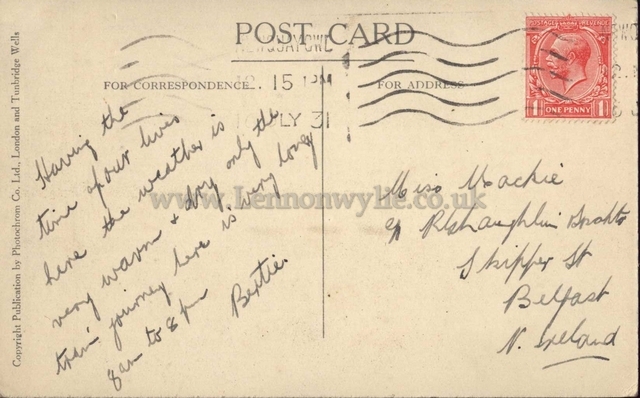 POST CARD
NEWQUAY CWL
15 PM
JLY 31
POSTAGE REVENUE
1 ONE PENNY 1
FOR CORRESPONDENCE.
FOR ADDRESS
Copyright Publication by Photochrom Co. Ltd., London and Tunbridge Wells
Having the
time of our lives
here the weather is
very warm & dry only the
train journey here is very long
8am to 8pm
Bertie.
www.Lennonwylie.co.uk
Miss Mackie
c/o
Skipper St
Belfast
N. Ireland